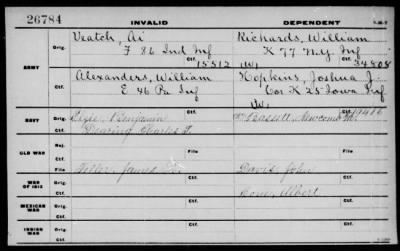 26784 INVALID DEPENDENT
Veatch, Ai Richards, William
Orig. F 86 Ind Inf K 77 N.Y. Inf
Ctf. 15512 (W) 34808
ARMY
Alexanders, William Hopkins, Joshua J.
Orig. E 46 Pa Inf Cor K 25 Iowa Inf
Ctf. W,
NAVY Orig. Benjamin Newcomb
Ctf. Dearing Charles F.
OLD WAR Rej.
Ctf. James Davis, John
WAR OF 1812 Orig. Albert
Ctf.
MEXICAN WAR Orig.
Ctf.
INDIAN WAR Orig.
Ctf.